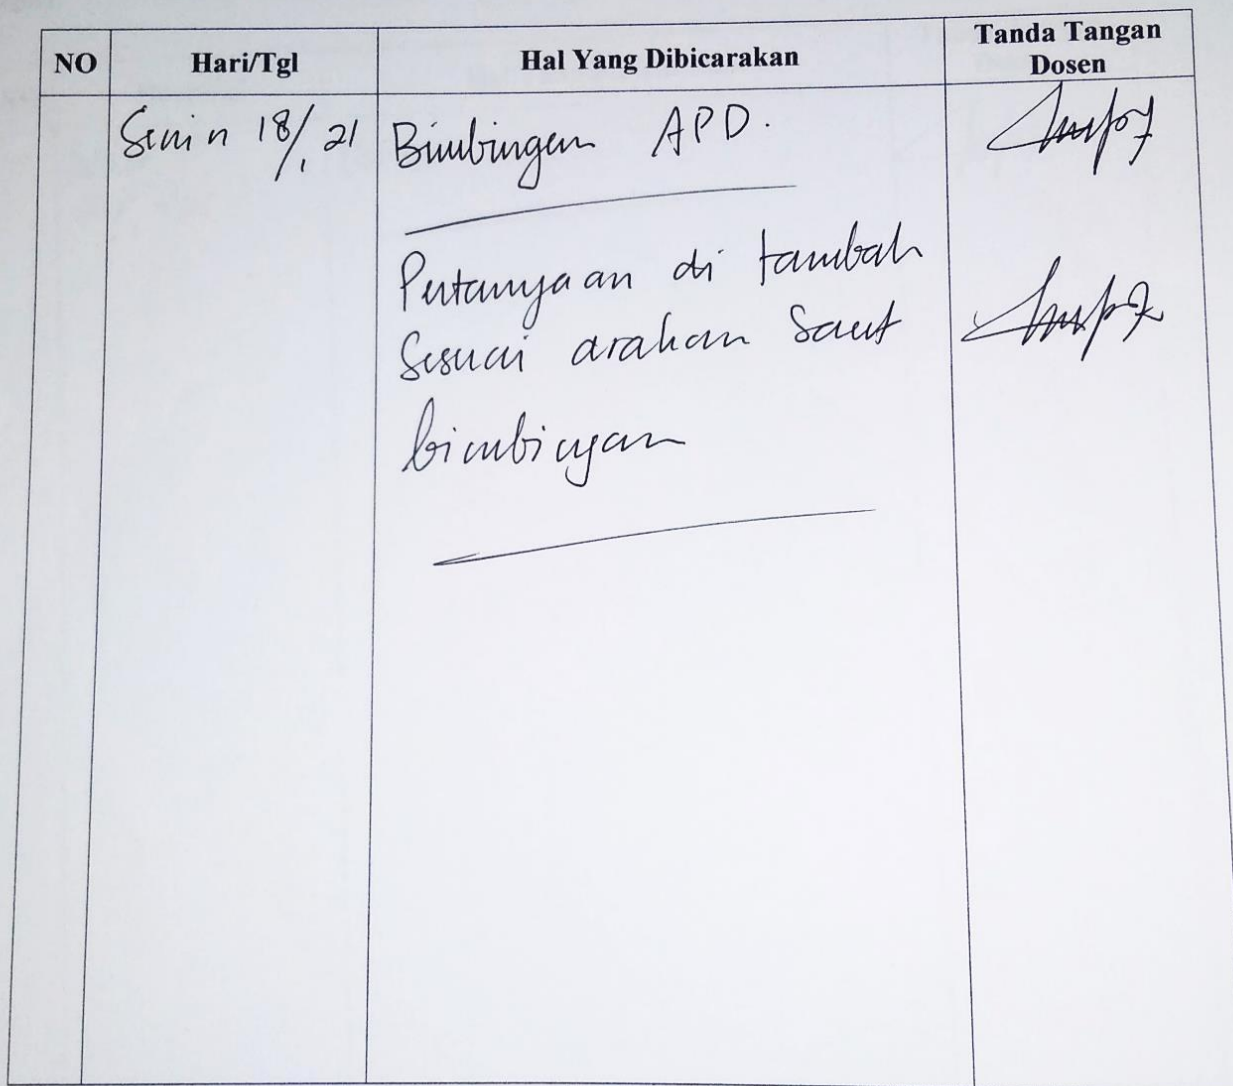 NO Hari/Tgl Hal Yang Dibicarakan Tanda Tangan
Dosen
Senin 18/1 21 Bimbingan APD.
Pertanyaan di tambah
Sesuai arahan Saat
bimbingan